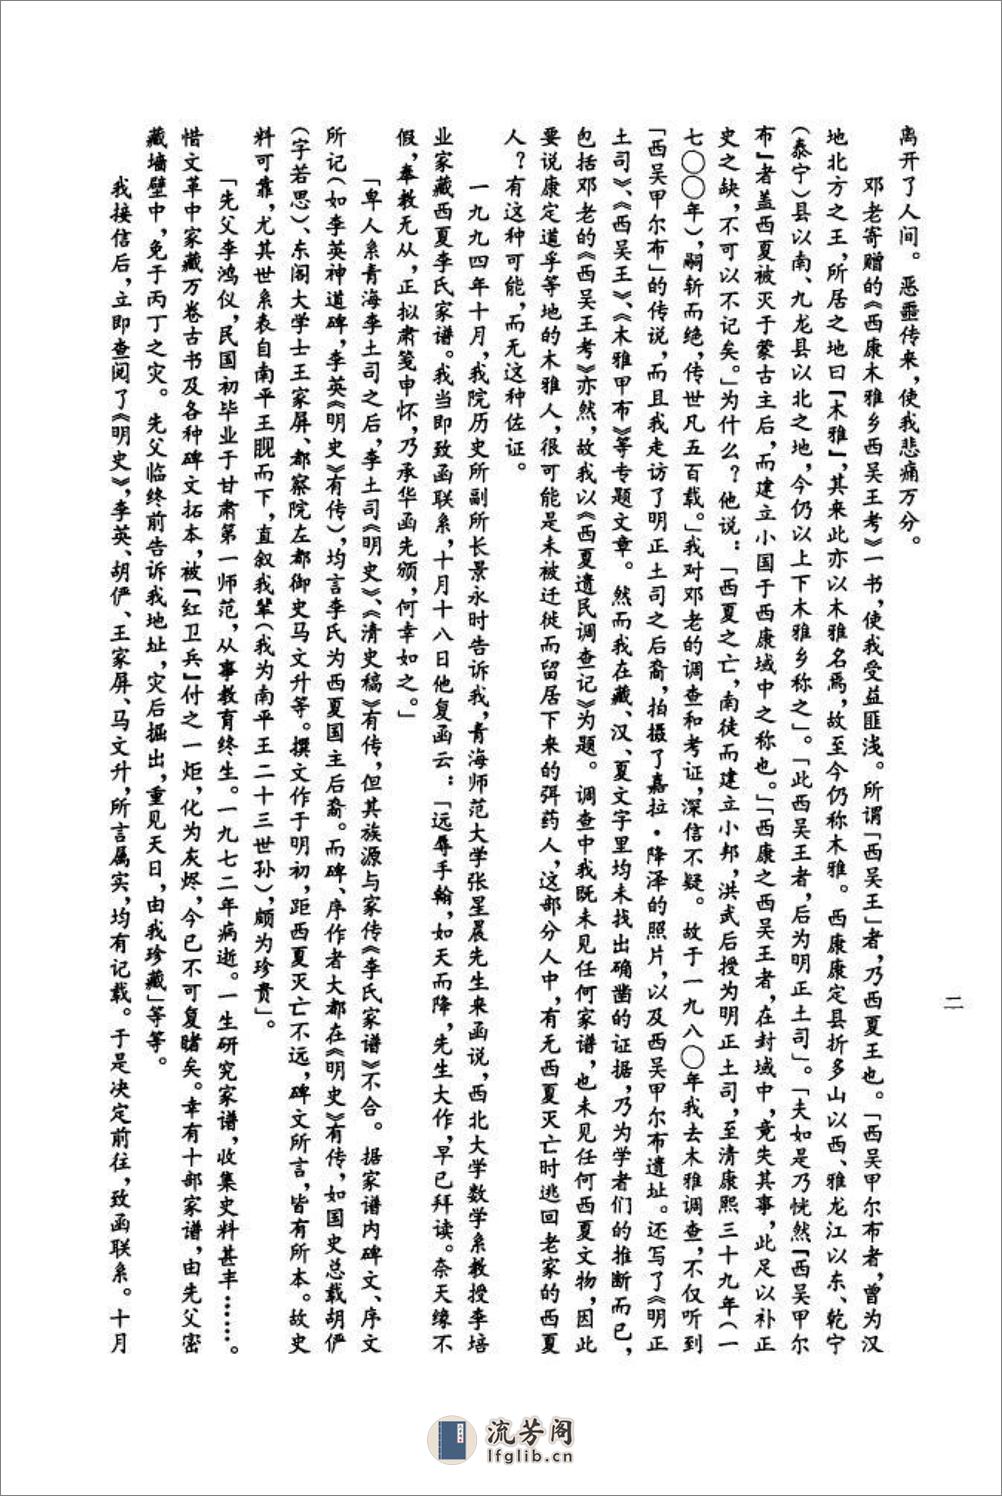 离开了人间。恶噩传来，使我悲痛万分。
邓老寄赠的《西康木雅乡西吴王考》一书，使我受益匪浅。所谓「西吴王」者，乃西夏王也。「西吴甲尔布者，曾为汉
地北方之王，所居之地曰『木雅』，其来此亦以木雅名焉，故至今仍称木雅。西康康定县折多山以西、雅龙江以东、乾宁
（泰宁）县以南、九龙县以北之地，今仍以上下木雅乡称之」。「此西吴王者，后为明正土司」。「夫如是乃恍然『西吴甲尔
布』者盖西夏被灭于蒙古主后，而建立小国于西康域中之称也。」「西康之西吴王者，在封域中，竟失其事，此足以补正
史之缺，不可以不记矣。」为什么？他说：「西夏之亡，南徒而建立小邦，洪武后授为明正土司，至清康熙三十九年（一
七〇〇年），嗣斩而绝，传世凡五百载。」我对邓老的调查和考证，深信不疑。故于一九八〇年我去木雅调查，不仅听到
「西吴甲尔布」的传说，而且我走访了明正土司之后裔，拍摄了嘉拉·降泽的照片，以及西吴甲尔布遗址。还写了《明正
土司》、《西吴王》、《木雅甲布》等专题文章。然而我在藏、汉、夏文字里均未找出确凿的证据，乃为学者们的推断而已，
包括邓老的《西吴王考》亦然，故我以《西夏遗民调查记》为题。调查中我既未见任何家谱，也未见任何西夏文物，因此
要说康定道孚等地的木雅人，很可能是未被迁徙而留居下来的弭药人，这部分人中，有无西夏灭亡时逃回老家的西夏
人？有这种可能，而无这种佐证。
一九九四年十月，我院历史所副所长景永时告诉我，青海师范大学张星晨先生来函说，西北大学数学系教授李培
业家藏西夏李氏家谱。我当即致函联系，十月十八日他复函云：「远辱手翰，如天而降，先生大作，早已拜读。奈天缘不
假，奉教无从，正拟肃笺申怀，乃承华函先颁，何幸如之。」
「卑人系青海李土司之后，李土司《明史》、《清史稿》有传，但其族源与家传《李氏家谱》不合。据家谱内碑文、序文
所记（如李英神道碑，李英《明史》有传），均言李氏为西夏国主后裔。而碑、序作者大都在《明史》有传，如国史总载胡俨
（字若思）、东阁大学士王家屏、都察院左都御史马文升等。撰文作于明初，距西夏灭亡不远，碑文所言，皆有所本。故史
料可靠，尤其世系表自南平王睍而下，直叙我辈（我为南平王二十三世孙），颇为珍贵」。
「先父李鸿仪，民国初毕业于甘肃第一师范，从事教育终生。一九七二年病逝。一生研究家谱，收集史料甚丰……。
惜文革中家藏万卷古书及各种碑文拓本，被『红卫兵』付之一炬，化为灰烬，今已不可复睹矣。幸有十部家谱，由先父密
藏墙壁中，免于丙丁之灾。先父临终前告诉我地址，灾后掘出，重见天日，由我珍藏」等等。
我接信后，立即查阅了《明史》，李英、胡俨、王家屏、马文升，所言属实，均有记载。于是决定前往，致函联系。十月
二
流芳阁
lfglib.cn